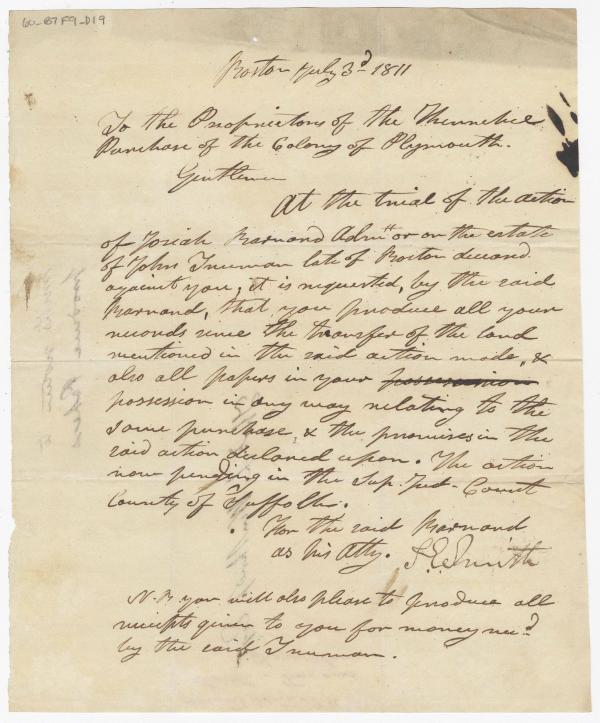 60-B7F9-D19
Boston July 3d 1811
To the Proprietors of the Kennebec
Purchase of the Colony of Plymouth.
Gentlemen
At the trial of the action
of Josiah Barnard Admr on the estate
of John Truman late of Boston deceasd
against you, it is requested, by the said
Barnard, that you produce all your
records since the transfer of the land
mentioned in the said action made, &
also all papers in your possession
possession in any way relating to the
same purchase & the promises in the
said action declared upon. The action
now pending in the Sup. Jud. Court
County of Suffolk.
For the said Barnard
as his Atty. Smith
N.B you will also please to produce all
receipts given to you for money recd
by the said Truman.